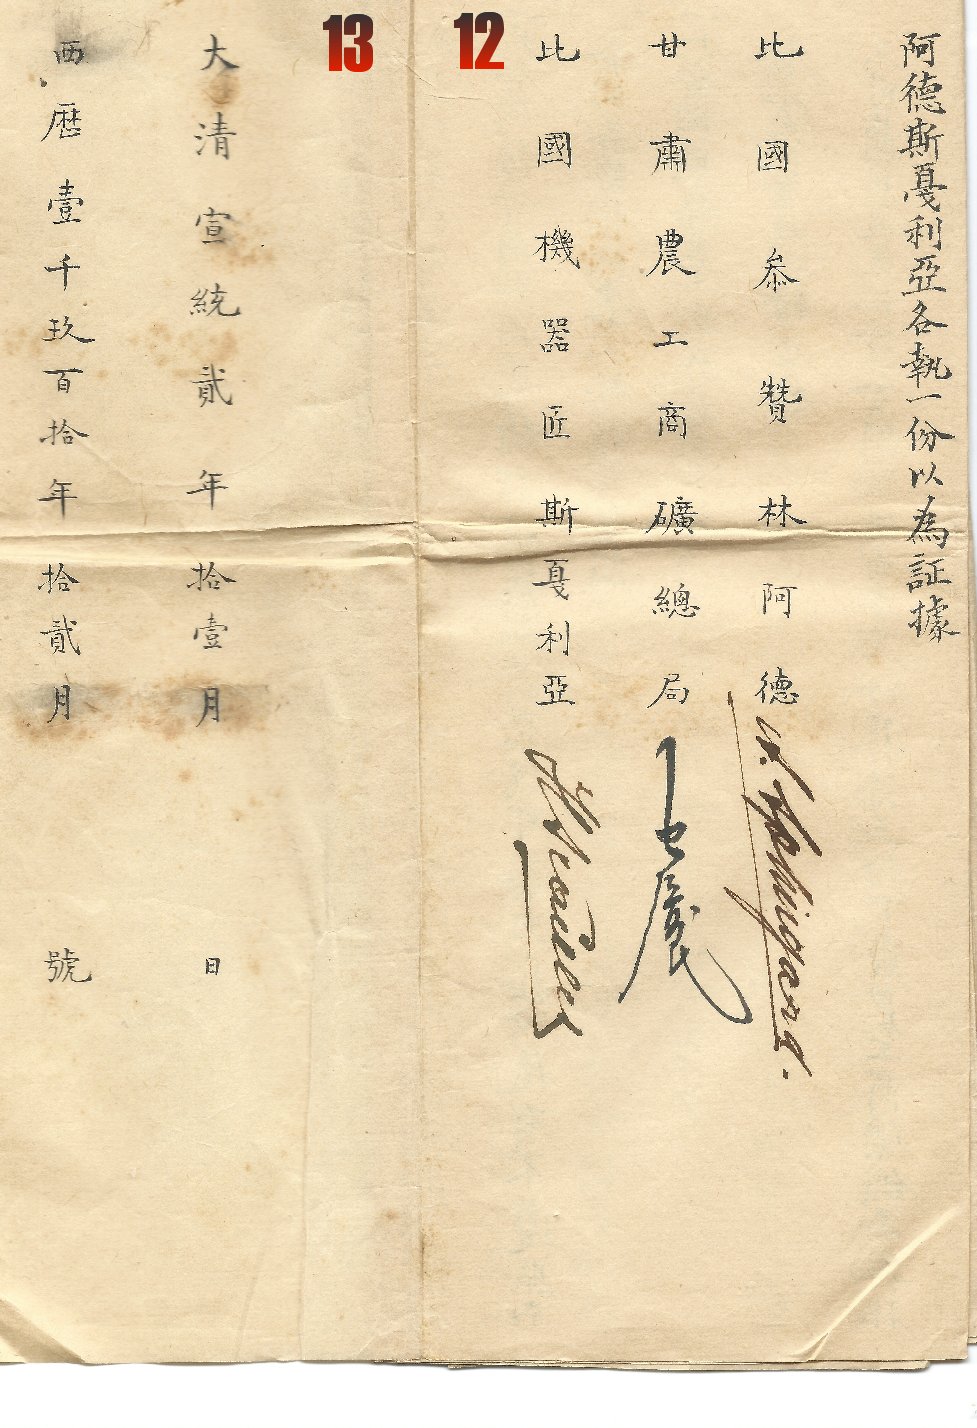 阿德斯戛利亞各執一份以為証據
比國叅贊林阿德
甘肅農工商礦總局
比國機器匠斯戛利亞
12
13
大清宣統貳年拾壹月 日
西曆壹千玖百拾年拾貳月 號